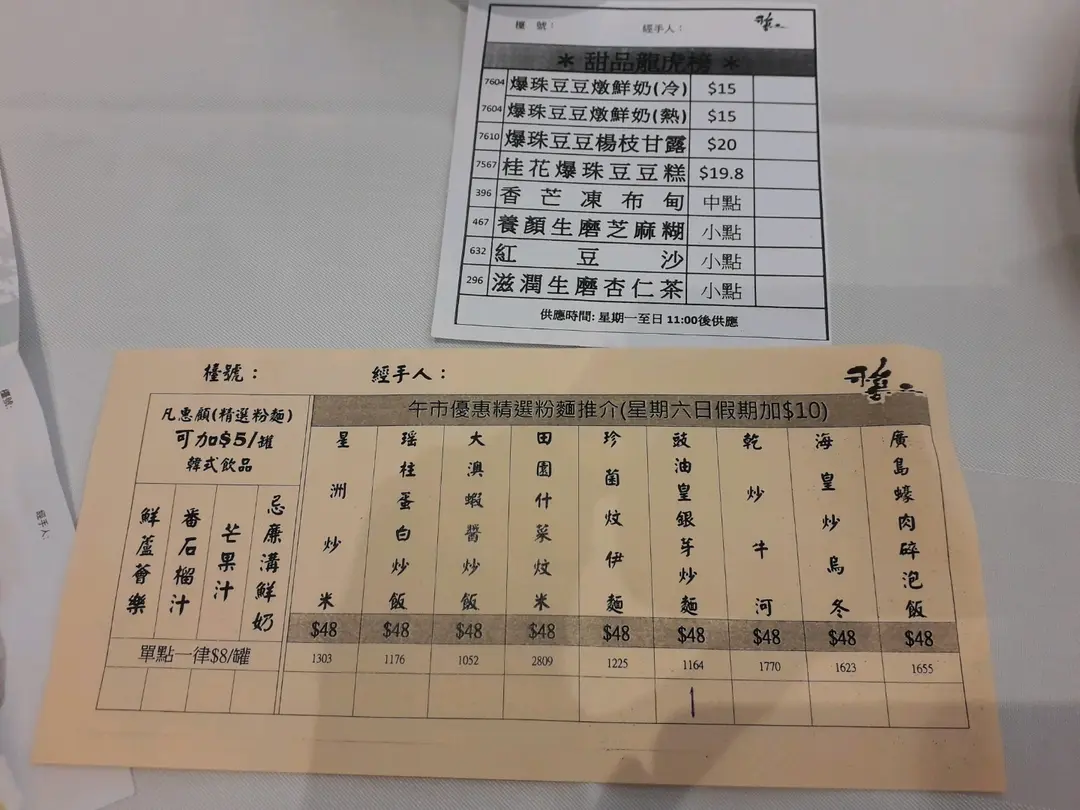 檯號：
經手人：
＊甜品龍虎榜＊
7604 爆珠豆豆燉鮮奶(冷) $15
7604 爆珠豆豆燉鮮奶(熱) $15
7610 爆珠豆豆楊枝甘露 $20
7567 桂花爆珠豆豆糕 $19.8
396 香芒凍布甸 中點
467 養顏生磨芝麻糊 小點
632 紅豆沙 小點
296 滋潤生磨杏仁茶 小點
供應時間: 星期一至日 11:00後供應
檯號:
經手人:
檯號：
經手人：
凡惠顧(精選粉麵)
可加$5/罐
韓式飲品
鮮蘆薈樂
番石榴汁
芒果汁
忌廉溝鮮奶
單點一律$8/罐
午市優惠精選粉麵推介(星期六日假期加$10)
星洲炒米
瑶柱蛋白炒飯
大澳蝦醬炒飯
田園什菜炆米
珍菌炆伊麵
豉油皇銀芽炒麵
乾炒牛河
海皇炒烏冬
廣島蠔肉碎泡飯
$48 $48 $48 $48 $48 $48 $48 $48 $48
1303 1176 1052 2809 1225 1164 1770 1623 1655